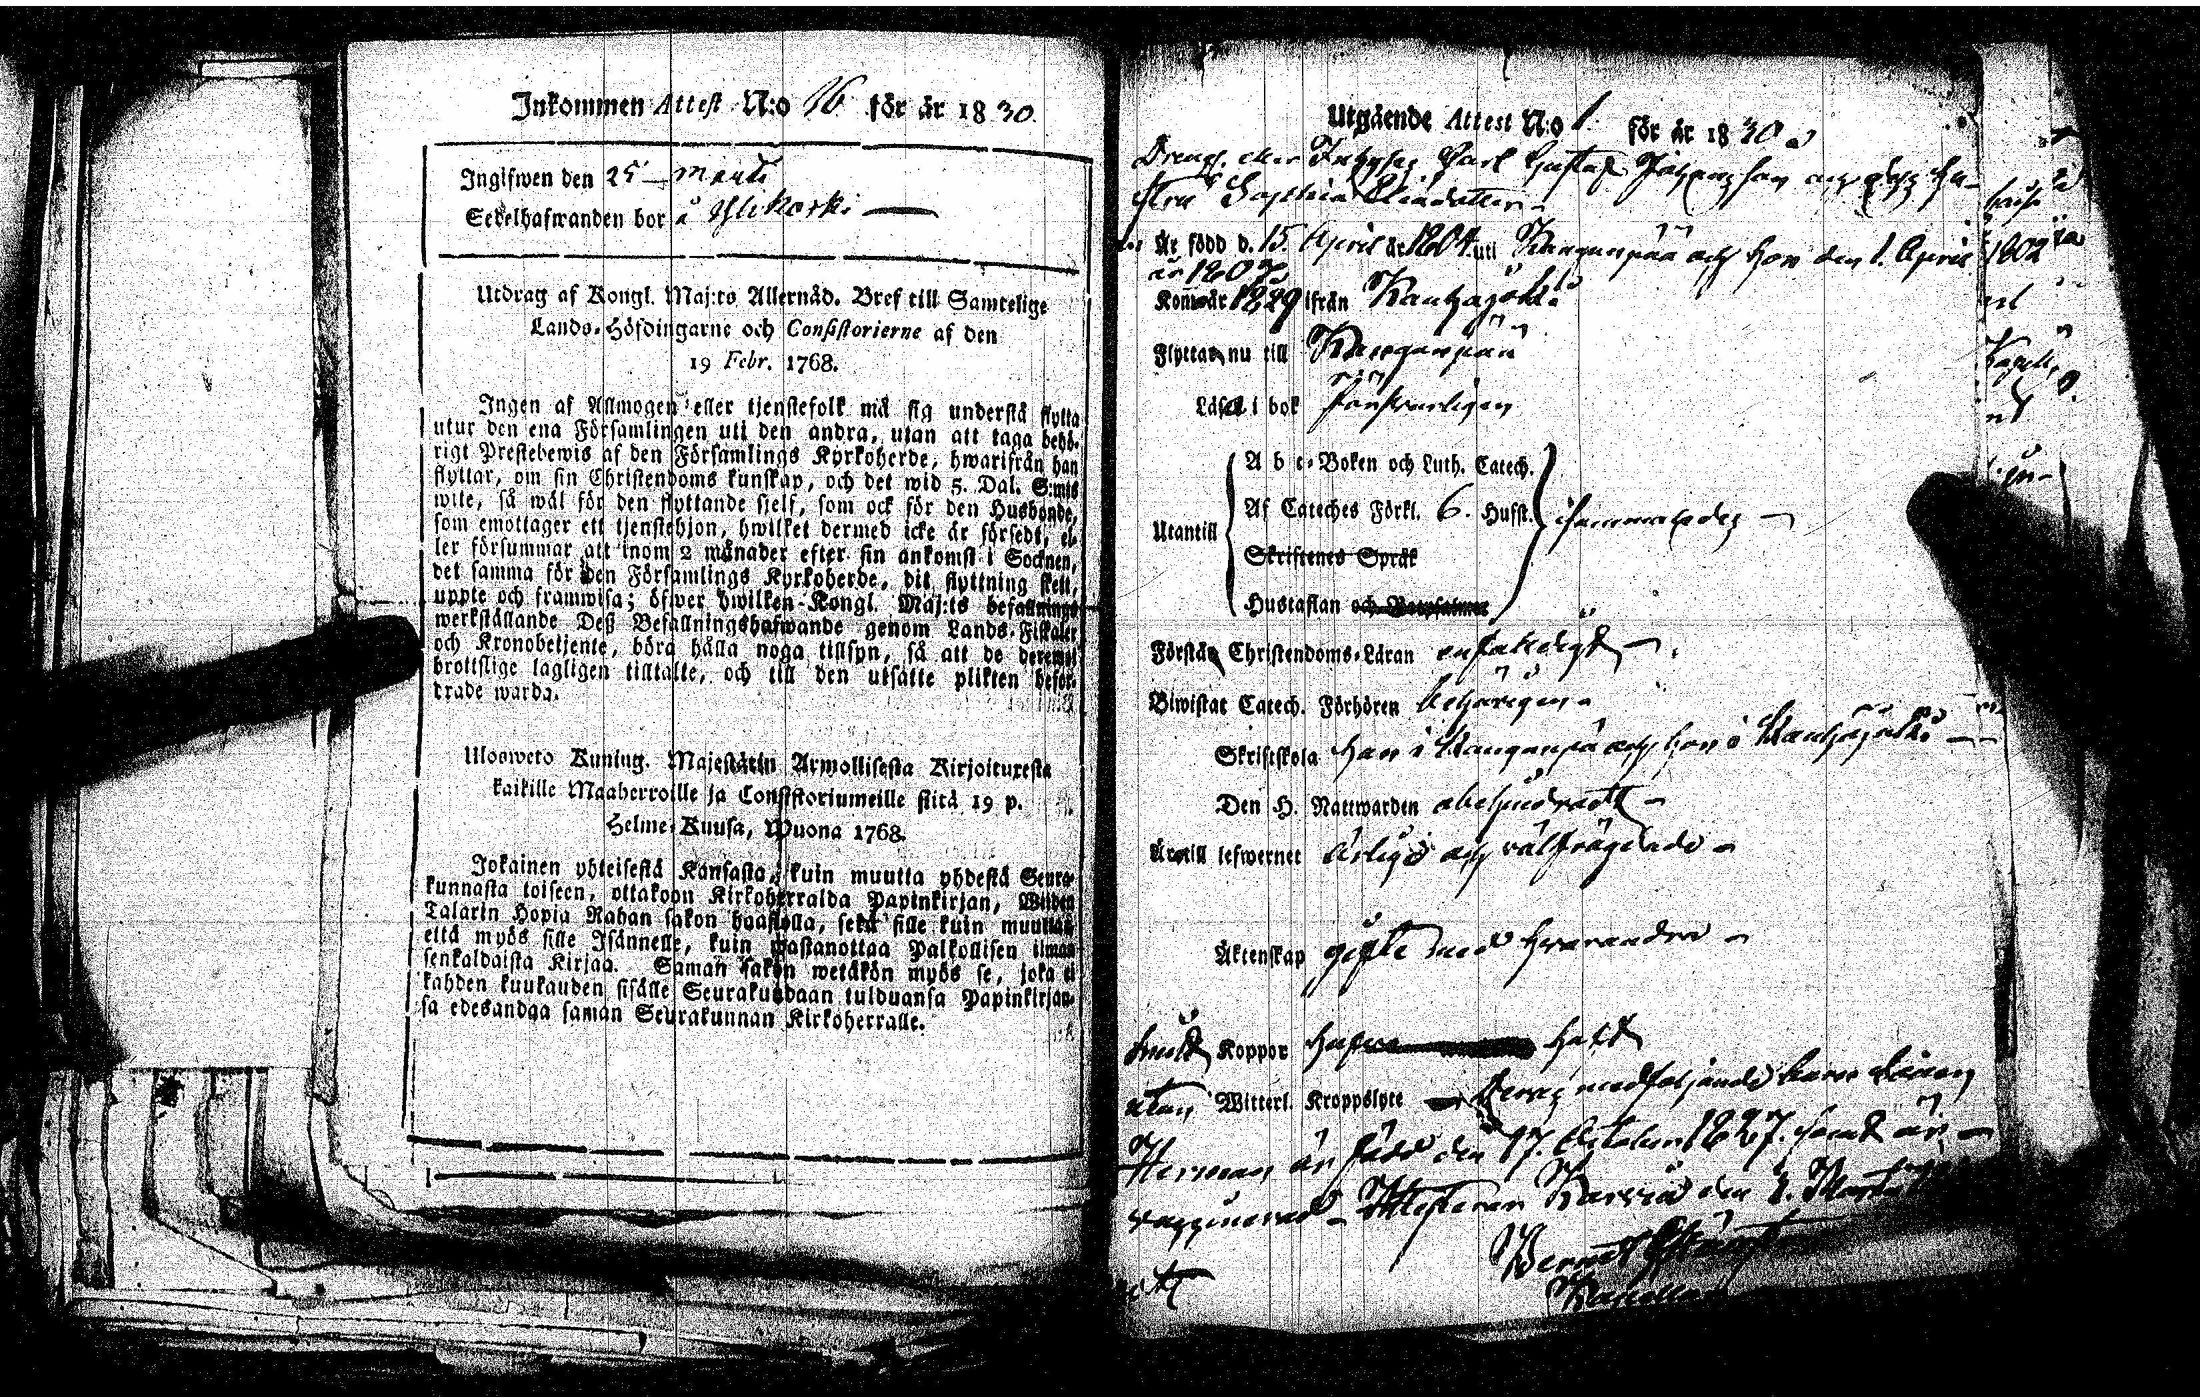 Inkommen Attest N:o 16 för år 1830.
Ingifwen den 25 Martii
Sedelhafwanden bor å Ylikoski
Utdrag af Kongl. Maj:ts Allernåd. Bref till Samtelige
Lands-Höfdingarne och Consistorierne af den
19 Febr. 1768.
Ingen af Allmogen eller tjenstefolk må sig understå flytta
utur den ena Församlingen uti den andra, utan att taga behö-
rigt Prestebewis af den Församlings Kyrkoherde, hwarifrån han
flyttar, om sin Christendoms kunskap, och det wid 5. Dal. S:mts
wite, så wäl för den flyttande sjelf, som ock för den Husbonde,
som emottager ett tjenstehjon, hwilket dermed icke är försedt, el-
ler försummar att inom 2 månader efter sin ankomst i Socknen,
det samma för den Församlings Kyrkoherde, dit flyttning skett,
uppte och framwisa; öfwer hwilken Kongl. Maj:ts befallnings
werkställande Deß Befallningshafwande genom Lands-Fiskaler
och Kronobetjente, böra hålla noga tillsyn, så att de deremot
brottslige lagligen tilltalte, och till den utsatte plikten befor-
drade warda.
Ulosweto Kuning. Majestätin Armollisesta Kirjoituxesta
kaikille Maaherroille ja Consistoriumeille siitä 19 p.
Helme-Kuusa, Wuona 1768.
Jokainen yhteisestä Kansasta, kuin muutta yhdestä Seura-
kunnasta toiseen, ottakoon Kirkoherralda Papinkirjan, Wiiden
Talarin Hopia Rahan sakon haastolla, sekä sille kuin muuttaa
että myös sille Isännelle, kuin wastanottaa Palkollisen ilman
senkaldaista Kirjaa. Saman sakon wetäkön myös se, joka ei
kahden kuukauden sisälle Seurakundaan tulduansa Papinkirjan-
sa edesandaa saman Seurakunnan Kirkoherralle.
Utgående Attest N:o 1. för år 1830.
Carl Gustaf Johansson och dess hu-
stru Sophia
Är född d. 15. April år 1804 uti Kangunpää och hon den 1. April
år 1807
Kom år 1829 ifrån Kauhajoki
Flyttar nu till Kangunpää
Läser i bok försvarligen
A b c-Boken och Luth. Catech.
Utantill Af Cateches Förkl. 6. Husst.
Skriftenes Språk
Hustaflan och
Förstår Christendoms-Läran enfaldigt
Biwistat Catech. Förhören behörigen
Skriftskola han i Kangunpä och hon i Kauhajoki
Den H. Nattwarden
Är till lefwernet ärlige och välfrägdade
Äktenskap gifte med hvarandra
Koppor hafva haft
utan Witterl. Kroppslyte Deras medföljande barn
Herman är född den 17. October 1827. samt är
vaccinerad Attesterar Karvia den 2. Martii